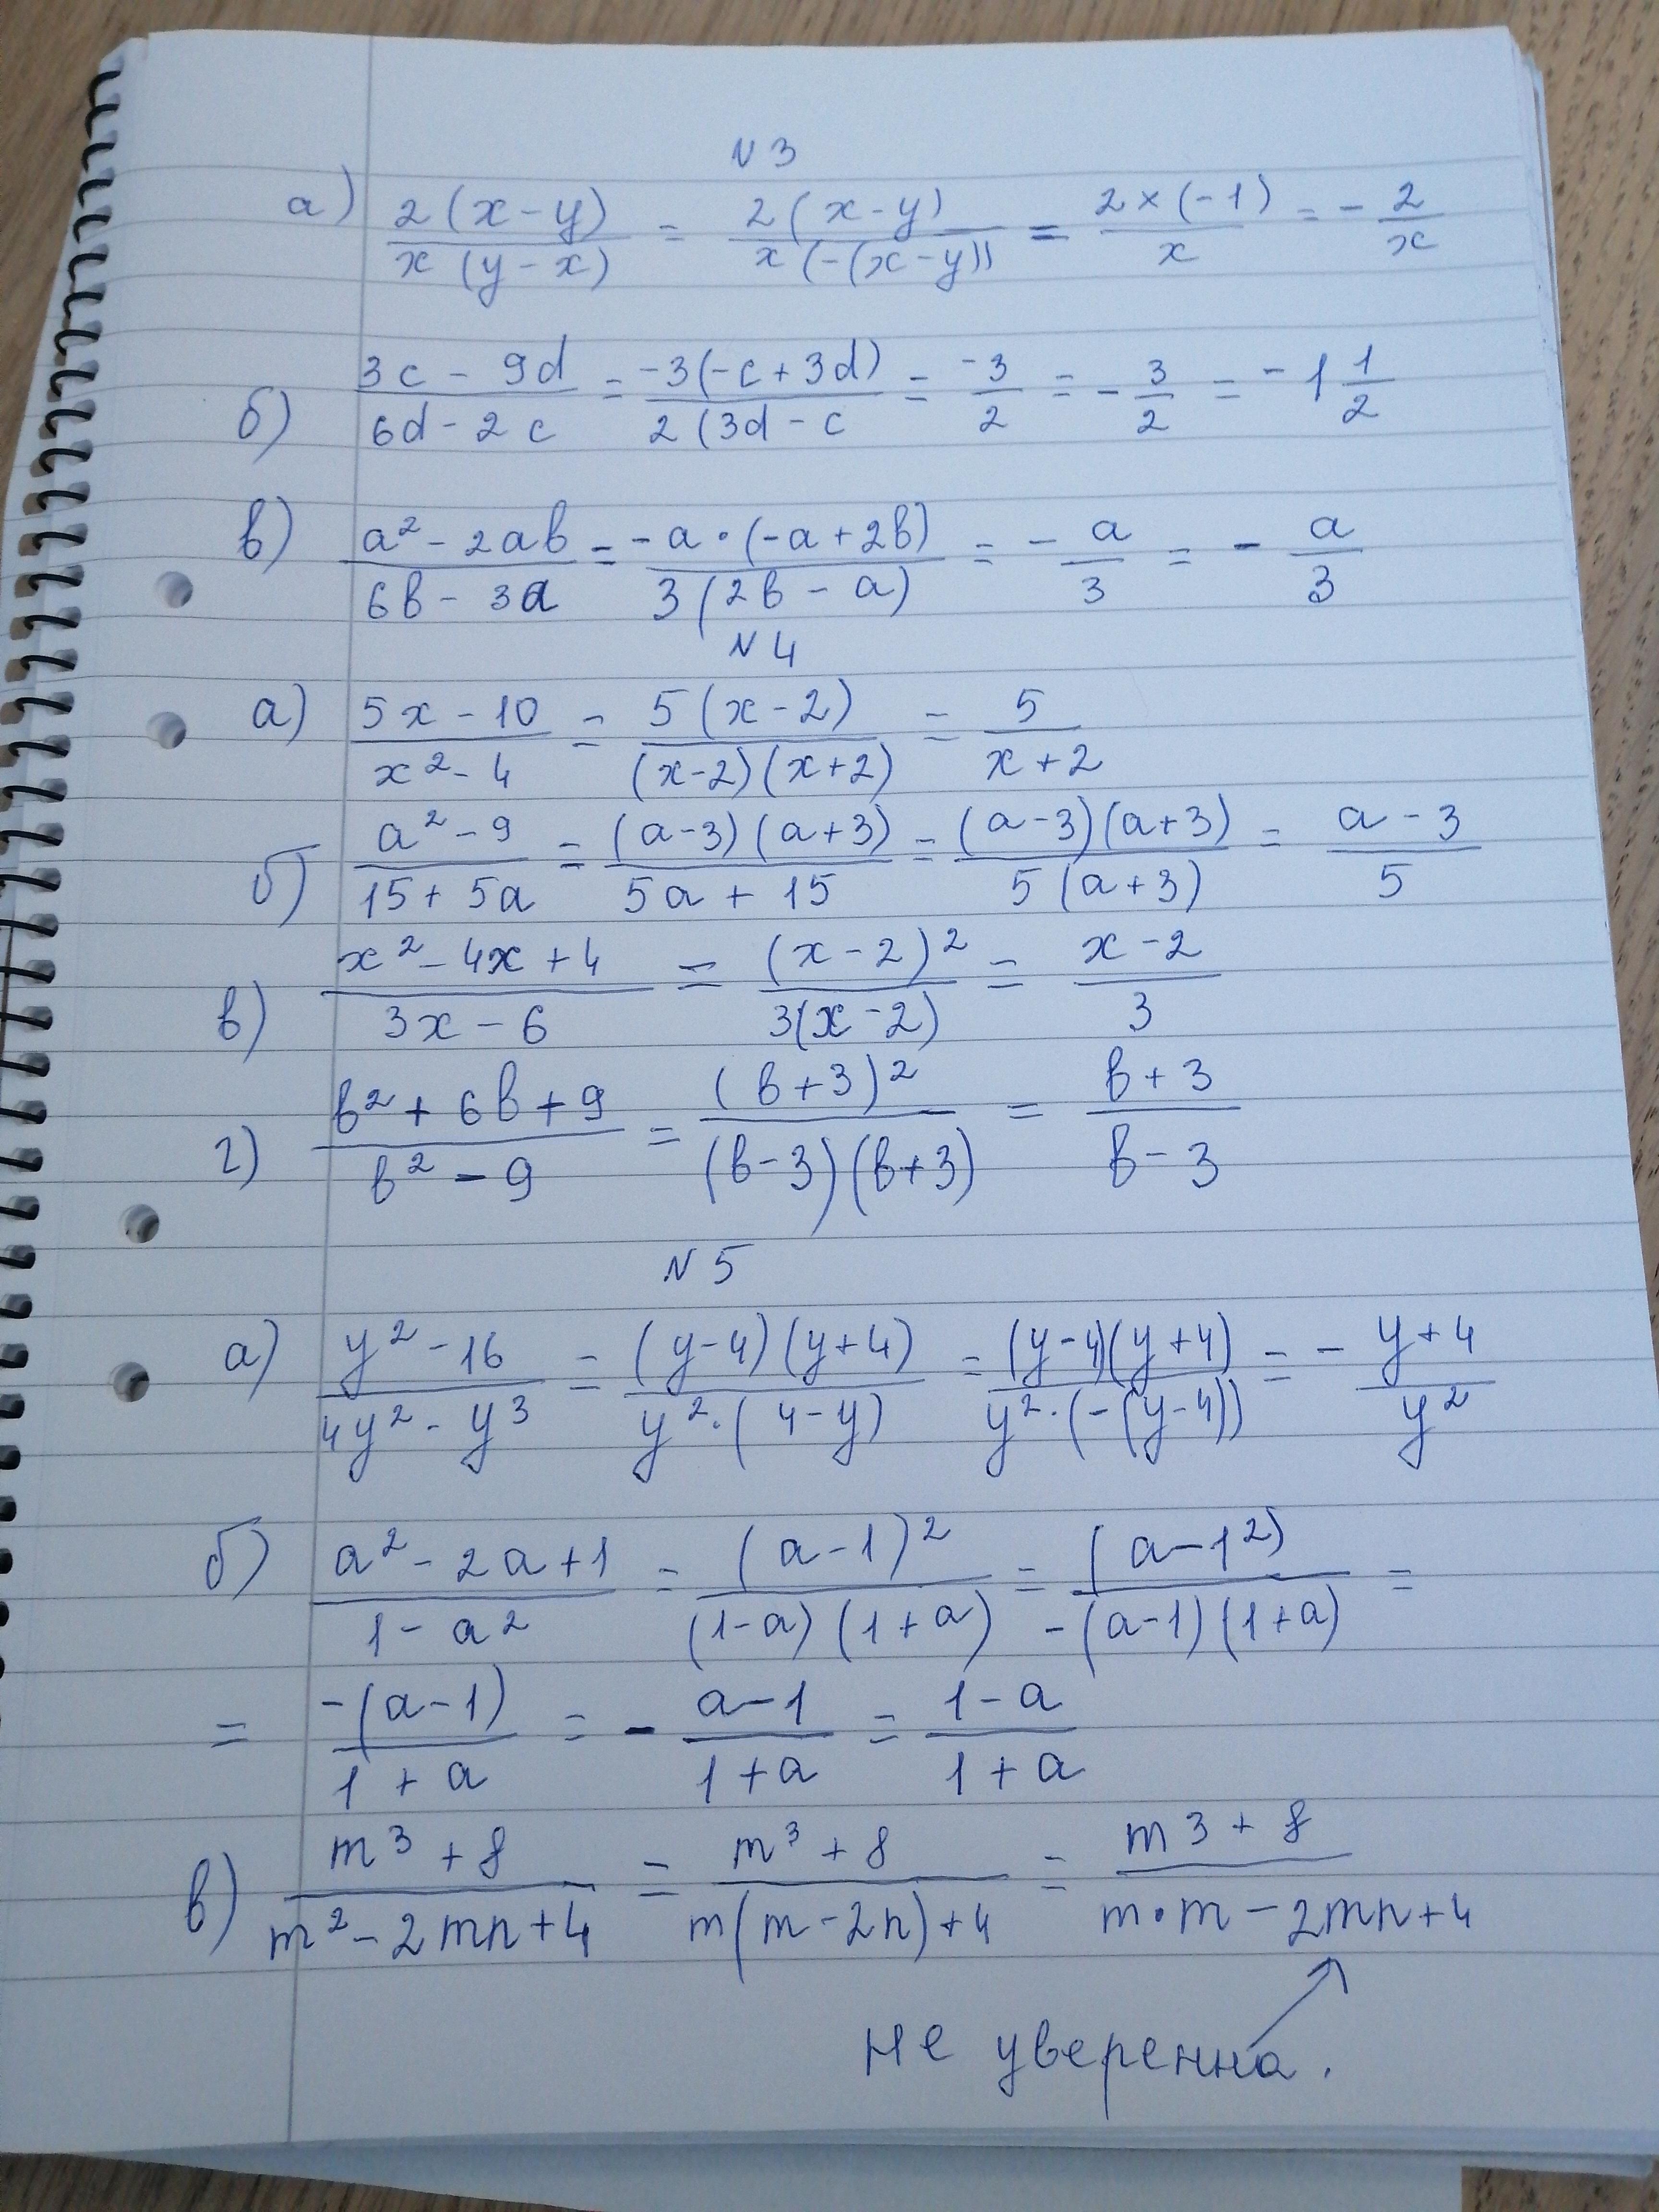 N 3
а) 2(x-y)/x(y-x) = 2(x-y)/x(-(x-y)) = 2×(-1)/x = -2/x
б) 3c-9d/6d-2c = -3(-c+3d)/2(3d-c = -3/2 = -3/2 = -1 1/2
в) a²-2ab/6b-3a = -a·(-a+2b)/3(2b-a) = -a/3 = -a/3
N 4
а) 5x-10/x²-4 = 5(x-2)/(x-2)(x+2) = 5/x+2
б) a²-9/15+5a = (a-3)(a+3)/5a+15 = (a-3)(a+3)/5(a+3) = a-3/5
в) x²-4x+4/3x-6 = (x-2)²/3(x-2) = x-2/3
г) b²+6b+9/b²-9 = (b+3)²/(b-3)(b+3) = b+3/b-3
N 5
а) y²-16/4y²-y³ = (y-4)(y+4)/y²·(4-y) = (y-4)(y+4)/y²·(-(y-4)) = -y+4/y²
б) a²-2a+1/1-a² = (a-1)²/(1-a)(1+a) = (a-1²)/-(a-1)(1+a) =
= -(a-1)/1+a = -a-1/1+a = 1-a/1+a
в) m³+8/m²-2mn+4 = m³+8/m(m-2n)+4 = m3+8/m·m-2mn+4
Не уверенна.